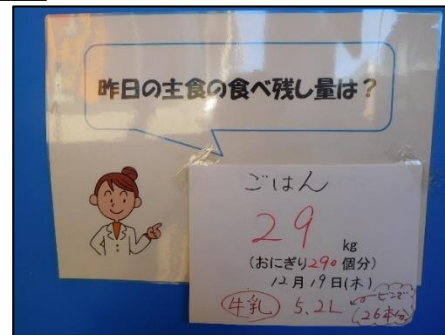 昨日の主食の食べ残し量は？
ごはん
29 kg
(おにぎり290個分)
12月19日(木)
牛乳 5.2L ビンで
(26本分)